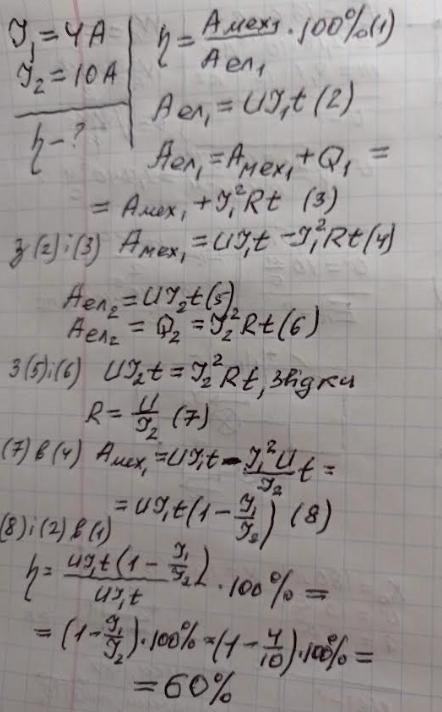 I₁ = 4A
I₂ = 10A
η - ?
η = Aмех₁/Aел₁ · 100% (1)
Aел₁ = UI₁t (2)
Aел₁ = Aмех₁ + Q₁ =
= Aмех₁ + I₁²Rt (3)
з (2) і (3) Aмех₁ = UI₁t - I₁²Rt (4)
Aел₂ = UI₂t (5)
Aел₂ = Q₂ = I₂²Rt (6)
З (5) і (6) UI₂t = I₂²Rt, звідки
R = U/I₂ (7)
(7) в (4) Aмех₁ = UI₁t - I₁²U/I₂ t =
= UI₁t (1 - I₁/I₂) (8)
(8) і (2) в (1)
η = UI₁t (1 - I₁/I₂)/UI₁t · 100% =
= (1 - I₁/I₂) · 100% = (1 - 4/10) · 100% =
= 60%